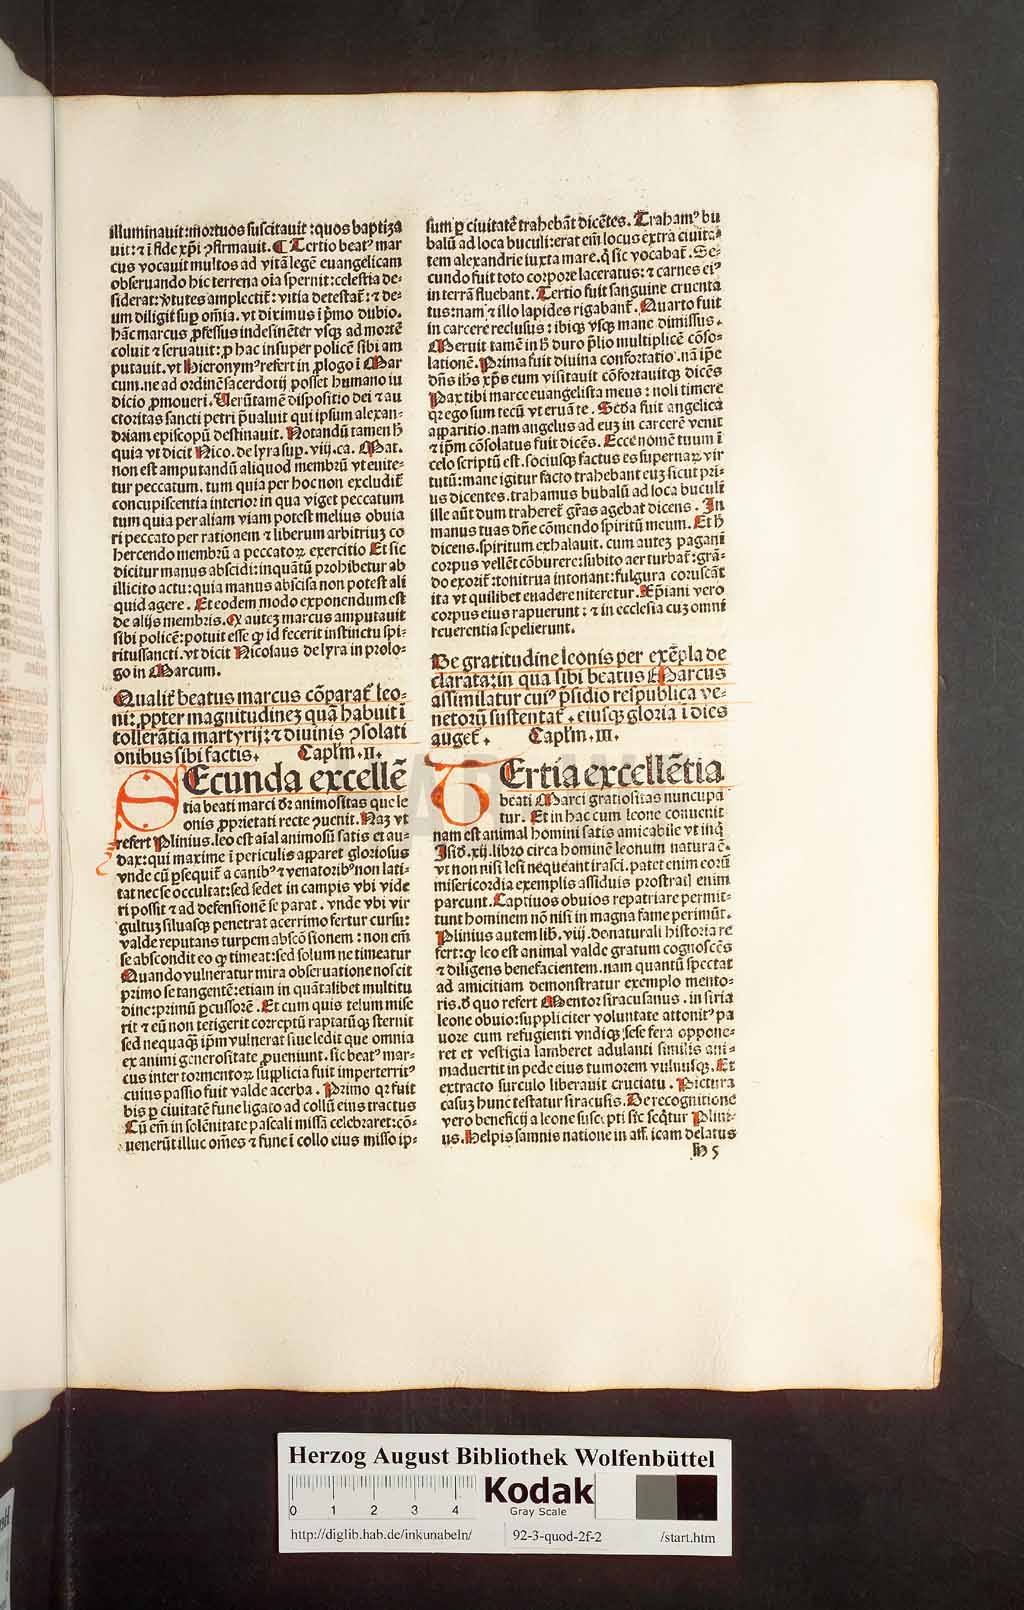 illuminauit:mortuos suscitauit:quos baptiza
uit:⁊ ī fide xp̄i ꝯfirmauit. ¶ Tertio beatꝰ mar
cus vocauit multos ad vitā legē euangelicam
obseruando hic terrena oīa spernit:celestia de-
siderat:v̓tutes amplectit̄:vitia detestat̄:⁊ de-
um diligit suꝑ om̄ia. vt diximus ī p̄mo dubio.
hāc marcus ꝓfessus indesinēter vsqꝫ ad mortē
coluit ⁊ seruauit:ꝓ hac insuper policē sibi am
putauit. vt Hieronymꝰ refert in ꝓlogo ī Mar
cum. ne ad ordinē sacerdotij posset humano iu
dicio ꝓmoueri. Uerūtamē dispositio dei ⁊ au
ctoritas sancti petri p̄ualuit qui ipsum alexan-
driam episcopū destinauit. Notandū tamen ħ
quia vt dicit Nico. de lyra suꝑ. vij. ca. Mat.
non est amputandū aliquod membrū vt euite-
tur peccatum. tum quia per hoc non excludit̄
concupiscentia interior in qua viget peccatum
tum quia per aliam viam potest melius obuia
ri peccato per rationem ⁊ liberum arbitriuꝫ co
hercendo membrū a peccatoꝝ exercitio Et sic
dicitur manus abscidi:inquātū prohibetur ab
illicito actu:quia manus abscisa non potest ali
quid agere. Et eodem modo exponendum est
de alijs membris. Q autez marcus amputauit
sibi policē:potuit esse ꝙ id fecerit instinctu spi-
ritussancti. vt dicit Nicolaus de lyra in prolo-
go in Marcum.
Qualit̄ beatus marcus cōparat̄ leo-
ni: ꝓpter magnitudinez quā habuit ī
tollerātia martyrij:⁊ diuinis ꝯsolati
onibus sibi factis. Caplm̄.II.
SEcunda excellē
tia beati marci dꝛ animositas que le
onis ꝓprietati recte ꝯuenit. Naꝫ vt
refert Plinius. leo est aīal animosū satis et au-
dax:qui maxime ī periculis apparet gloriosus
vnde cū ꝑsequit̄ a canibꝰ ⁊ venatoribꝰ non lati-
tat nec se occultat:sed sedet in campis vbi vide
ri possit ⁊ ad defensionē se parat. vnde vbi vir
gultuꝫ siluasqꝫ penetrat acerrimo fertur cursu:
valde reputans turpem abscōsionem:non em̄
se abscondit eo ꝙ timeat:sed solum ne timeatur
Quando vulneratur mira obseruatione noscit
primo se tangentē:etiam in quātalibet multitu
dine:primū ꝑcussorē. Et cum quis telum mise
rit ⁊ eū non tetigerit correptū raptatūqꝫ sternit
sed nequaqꝫ ip̄m vulnerat siue ledit que omnia
ex animi generositate ꝓueniunt. sic beatꝰ mar-
cus inter tormentoꝝ supplicia fuit imperterritꝰ
cuius passio fuit valde acerba. Primo qꝛ fuit
bis ꝑ ciuitatē fune ligato ad collū eius tractus
Cū em̄ in solēnitate pascali missā celebraret:cō-
uenerūt illuc om̄es ⁊ fune ī collo eius misso ip-
sum ꝑ ciuitatē trahebāt dicētes. Trahamꝰ bu
balū ad loca buculi:erat em̄ locus extra ciuita-
tem alexandrie iuxta mare. q̄ sic vocabat̄. Se-
cundo fuit toto corpore laceratus:⁊ carnes eiꝰ
in terrā fluebant. Tertio fuit sanguine cruenta
tus:nam ⁊ illo lapides rigabant̄. Quarto fuit
in carcere reclusus:ibiqꝫ vsqꝫ mane dimissus.
Meruit tamē in ħ duro p̄lio multiplicē cōso-
lationē. Prima fuit diuina confortatio. nā ip̄e
dn̄s ih̄s xp̄s eum visitauit cōfortauitqꝫ dicēs
Pax tibi marce euangelista meus:noli timere
qꝛ ego sum tecū vt eruā te. Scd̄a fuit angelica
apparitio. nam angelus ad euꝫ in carcerē venit
⁊ ip̄m cōsolatus fuit dicēs. Ecce nomē tuum ī
celo scriptū est. sociusqꝫ factus es supernaꝝ vir
tutū:mane igitur facto trahebant euꝫ sicut pri-
us dicentes. trahamus bubalū ad loca buculi
ille aūt dum traheret̄ grās agebat dicens. In
manus tuas dn̄e cōmendo spiritū meum. Et ħ
dicens. spiritum exhalauit. cum autez pagani
corpus vellēt cōburere:subito aer turbat̄:grā-
do exorit̄:tonitrua intonant:fulgura coruscāt
ita vt quilibet euadere niteretur. Xp̄iani vero
corpus eius rapuerunt:⁊ in ecclesia cuꝫ omni
reuerentia sepelierunt.
De gratitudine leonis per exēpla de
clarata:in qua sibi beatus Marcus
assimilatur cuiꝰ p̄sidio respublica ve-
netorū sustentat̄. eiusqꝫ gloria ī dies
auget̄. Caplm̄.III.
TErtia excellētia
beati Marci gratiositas nuncupa
tur. Et in hac cum leone conuenit
nam est animal homini satis amicabile vt inq̄
Isid̄. xij. libro circa hominē leonum natura ē.
vt non nisi lesi nequeant irasci. patet enim eorū
misericordia exemplis assiduis prostratꝭ enim
parcunt. Captiuos obuios repatriare permit-
tunt hominem nō nisi in magna fame perimūt.
Plinius autem lib. viij. de naturali historia re
fert:ꝙ leo est animal valde gratum cognoscēs
⁊ diligens benefacientem. nam quantū spectat
ad amicitiam demonstratur exemplo mento-
ris. d̄ quo refert Mentor siracusanus. in siria
leone obuio:suppliciter voluntate attonitꝰ pa
uore cum refugienti vndiqꝫ sese fera oppone-
ret et vestigia lamberet adulanti similis ani-
maduertit in pede eius tumorem vulnusqꝫ. Et
extracto surculo liberauit cruciatu. Pictura
casuꝫ hunc testatur siracusis. De recognitione
vero beneficij a leone suscepti sic seqͥtur Plini-
us. Helpis samnis natione in affricam delatus
h 5
Herzog August Bibliothek Wolfenbüttel
0 1 2 3 4
Kodak
Gray Scale
http://diglib.hab.de/inkunabeln/ 92-3-quod-2f-2 /start.htm